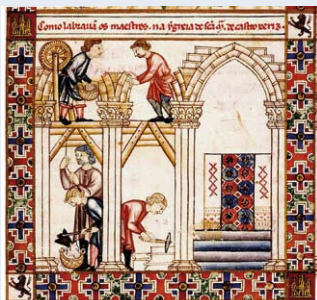 Como labrauã os maestres. na ygreia de sc̃a m̃. de castro xeriz.